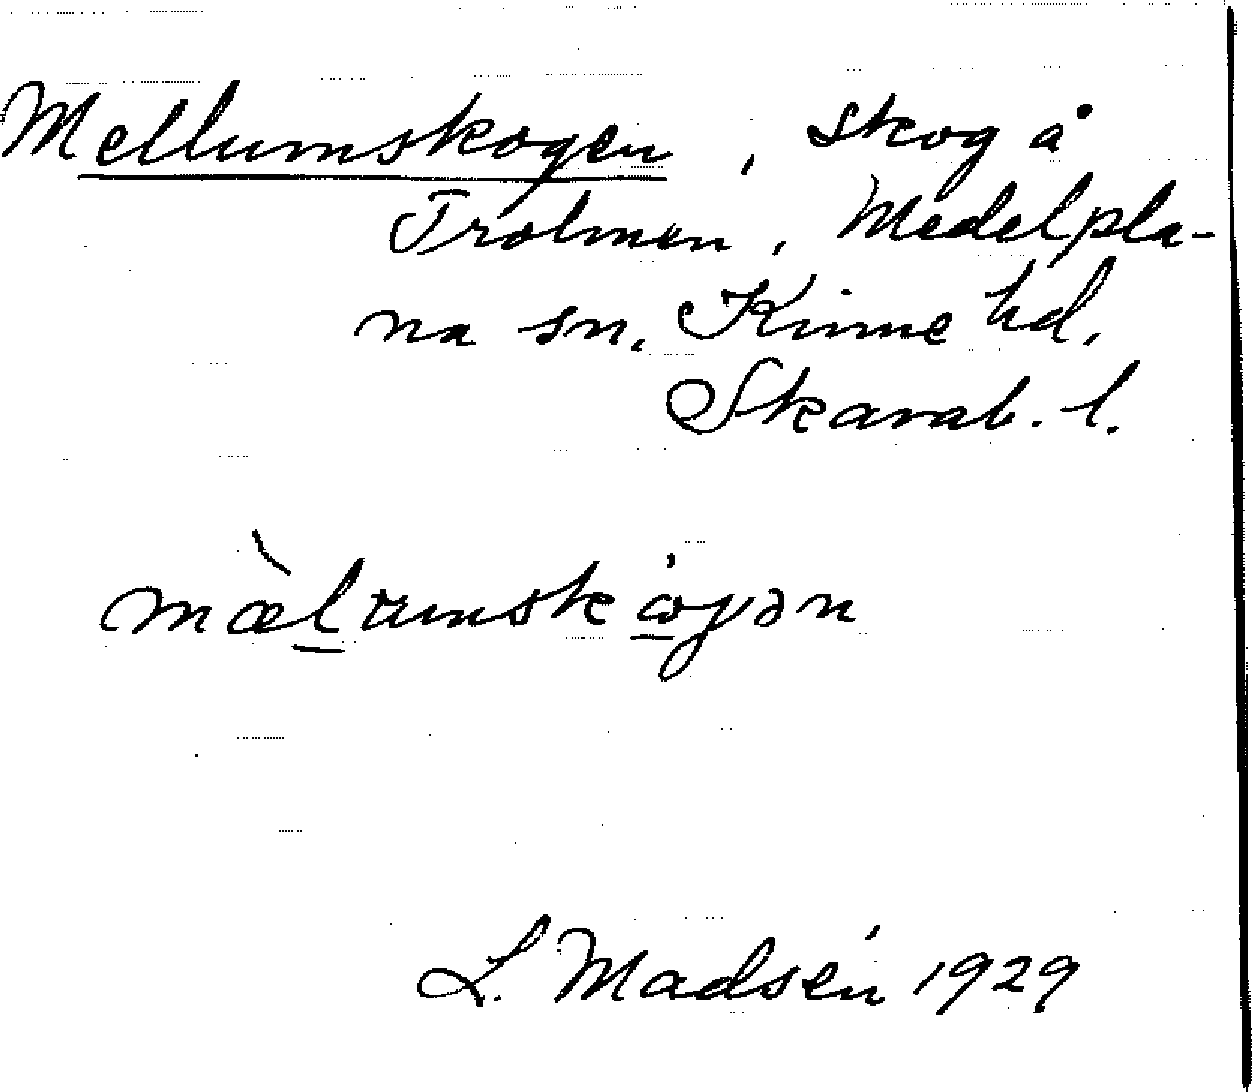 Mellumskogen, skog å
Trolmen, Medelpla-
na sn. Kinne hd,
Skarab. l.
mæ̀lumskȯγən
L. Madsén 1929